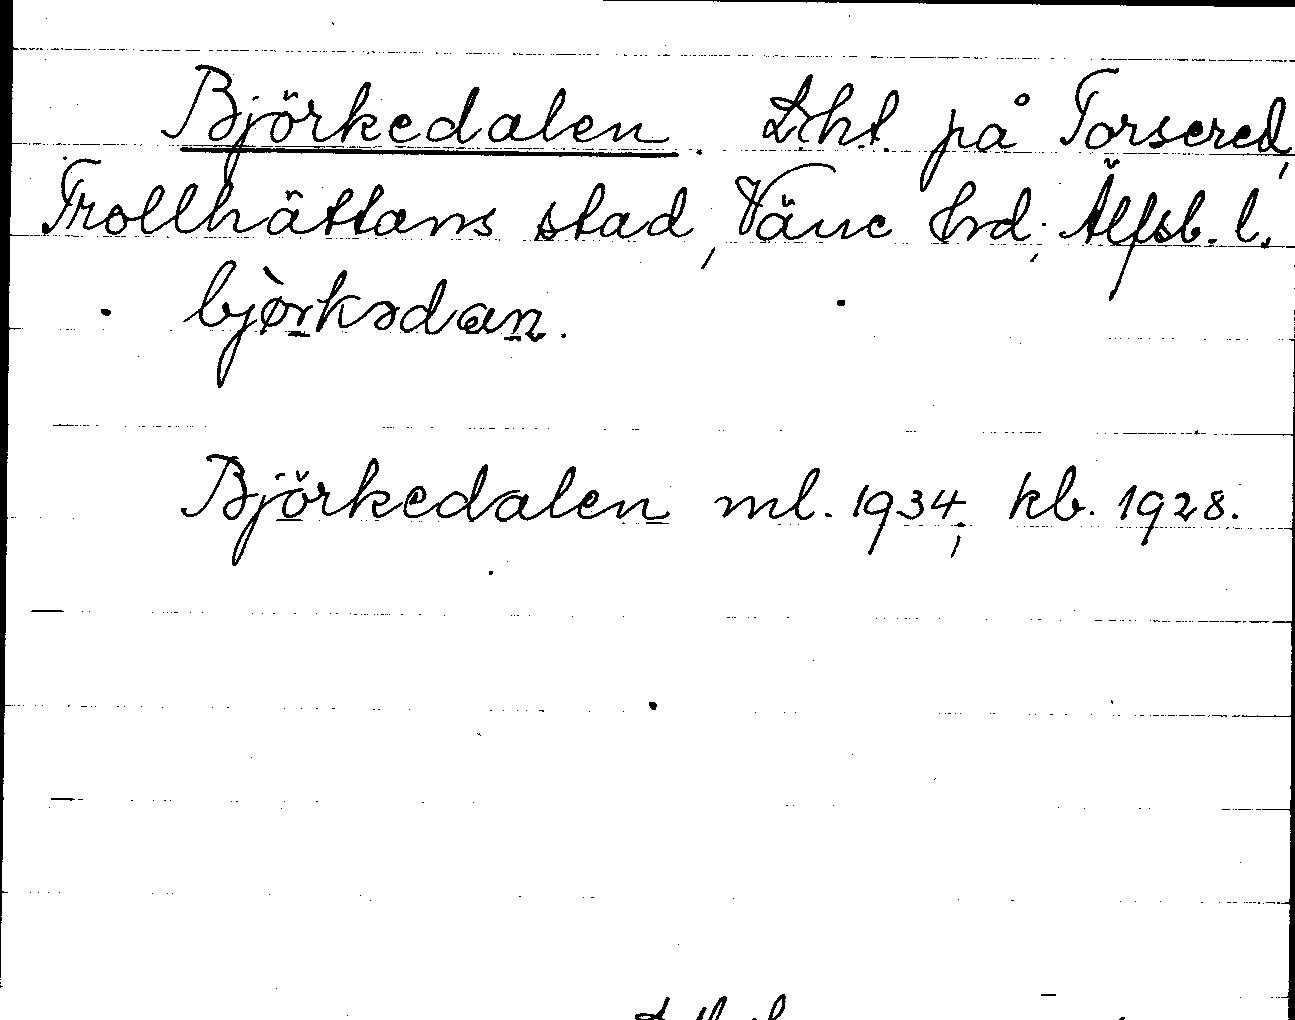 Björkedalen. Lht. på Torsered,
Trollhättans stad, Väne hrd; Älfsb. l.
bjòrkədan.
Björkedalen ml. 1934; kb. 1928.